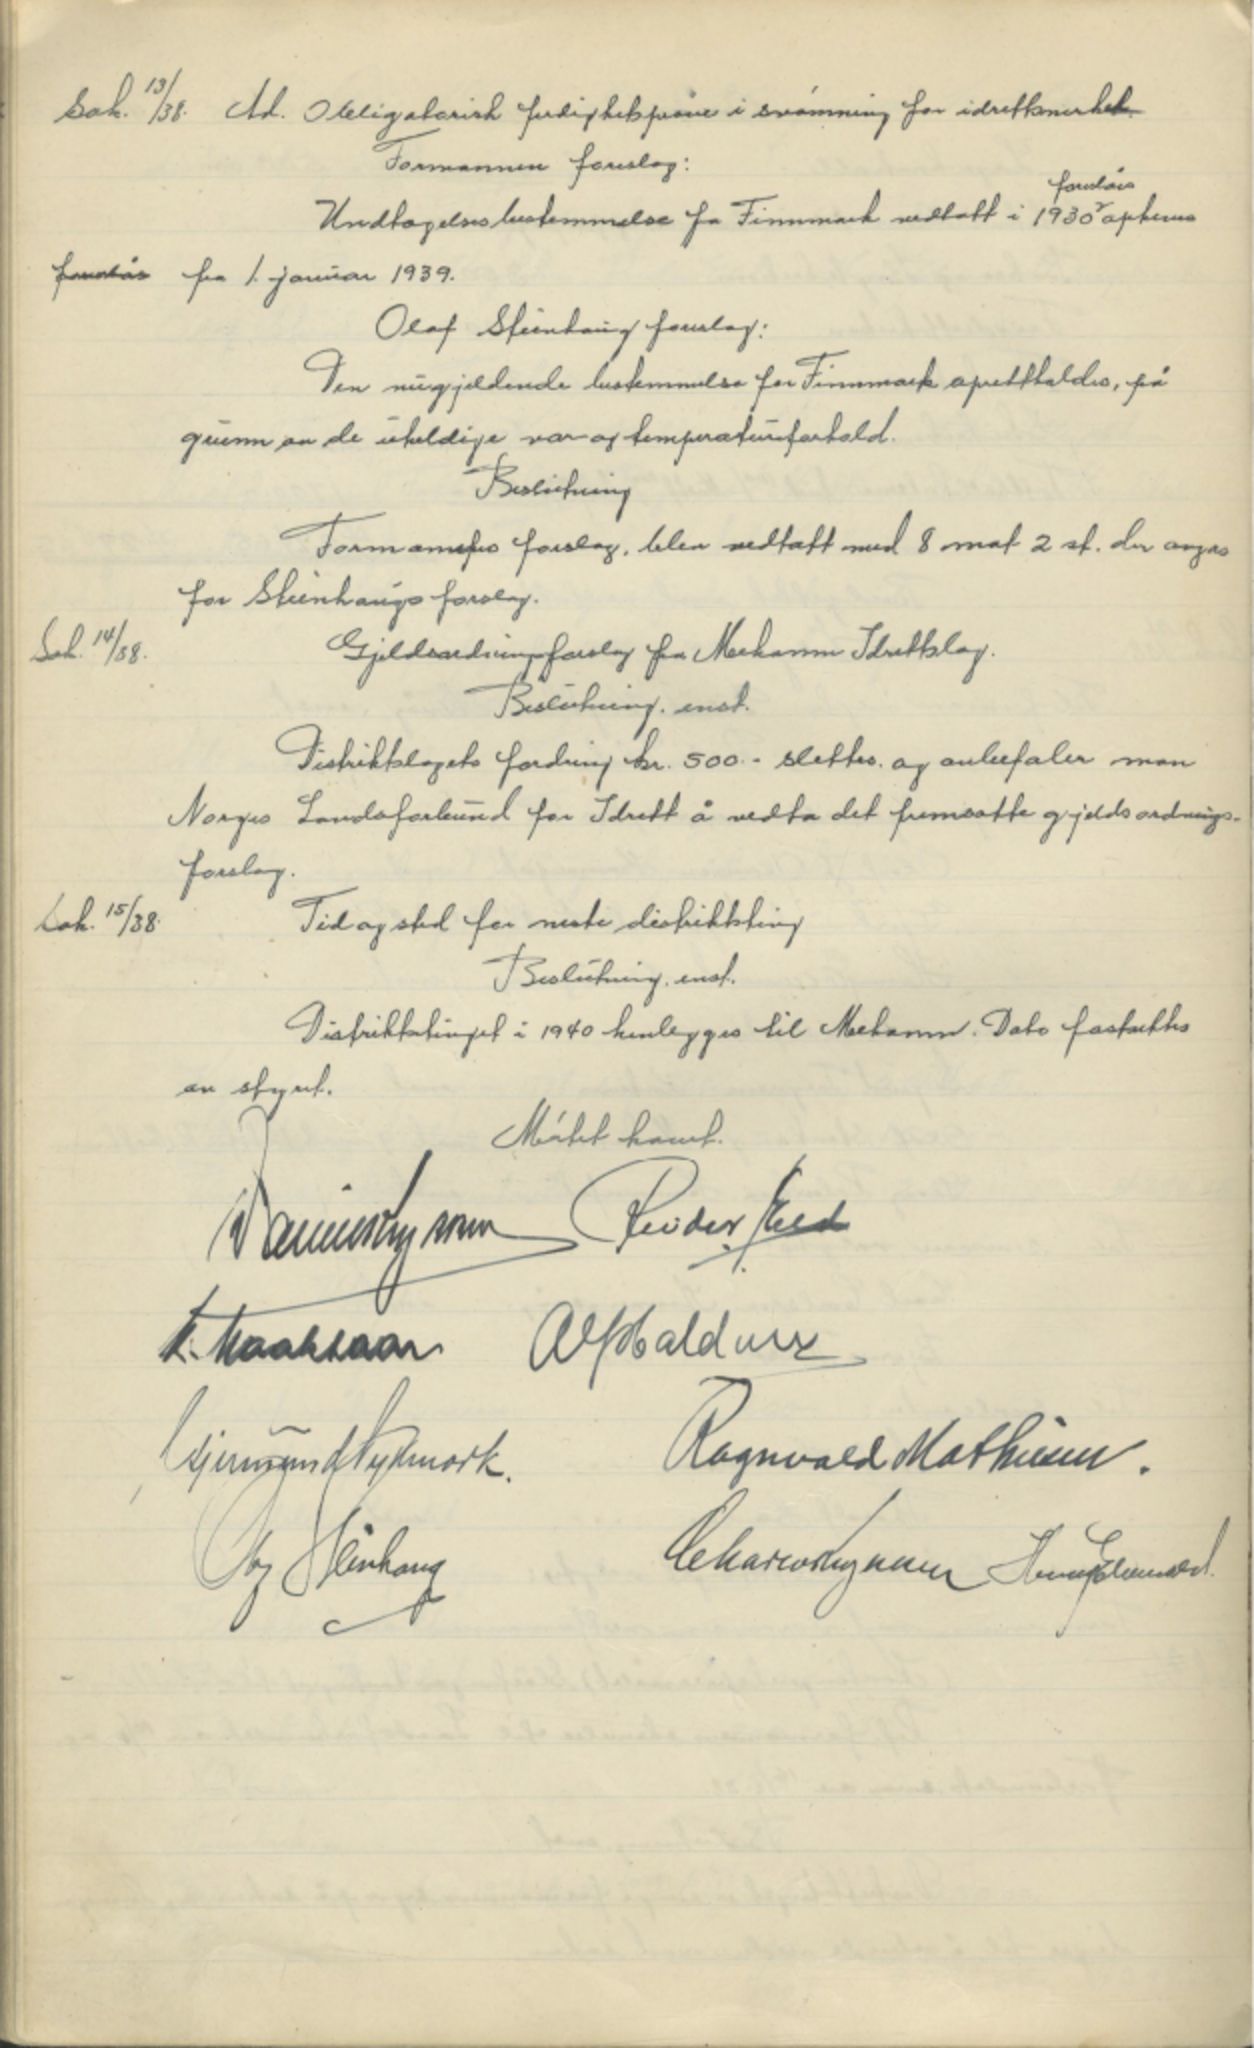 Sak. 13/38. Ad. Obligatorisk ferdighetsprøve i svømning for idrettsmerket.
Formannen foreslog:
foreslåes
Undtagelsesbestemmelse for Finnmark vedtatt i 1930 opheves
foreslåes fra 1. januar 1939.
Olaf Steinhaug foreslog:
Den nugjeldende bestemmelse for Finnmark oprettholdes, på
grunn av de uheldige vær og temperaturforhold.
Beslutning
Formannens forslag, blev vedtatt med 8 mot 2 st. der avgas
for Steinhaugs forslag.
Sak. 14/38. Gjeldsordningsforslag fra Mehamn Idrettslag.
Beslutning. enst.
Distriktslagets fordring kr. 500.- slettes. og anbefaler man
Norges Landsforbund for Idrett å vedta det fremsatte gjeldsordnings-
forslag.
Sak. 15/38. Tid og sted for neste distriktsting
Beslutning. enst.
Distriktstinget i 1940 henlegges til Mehamn. Dato fastsettes
av styret.
Møtet hevet.
Reidar
Alf Haldorsen
Nymork.
Ragnvald Mathisen.
Steinhaug